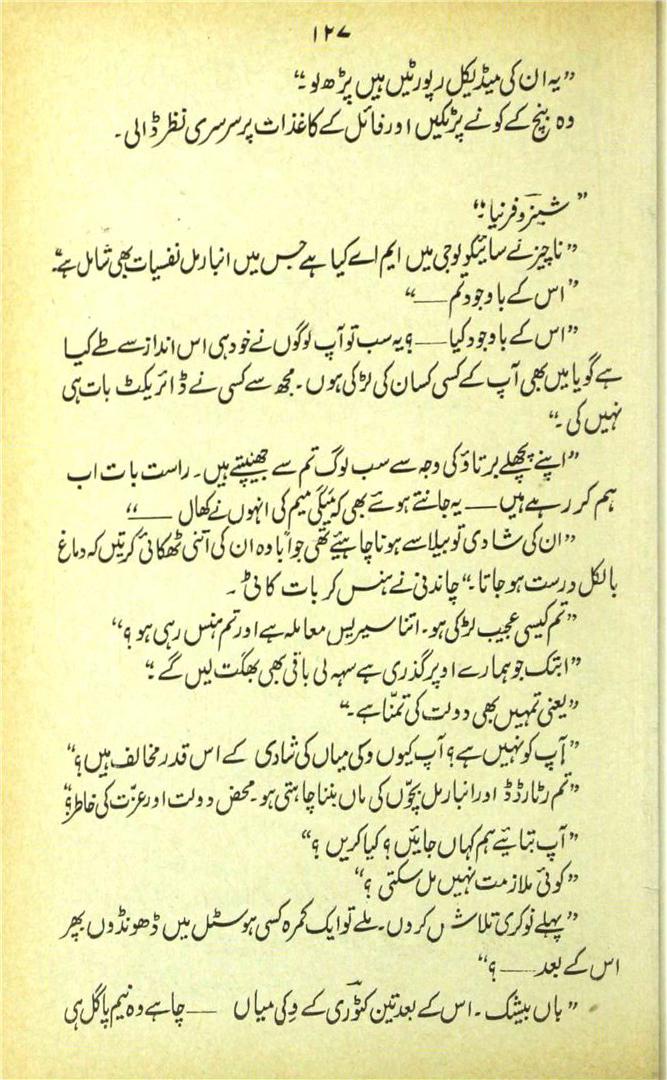 ۱۲۷
”یہ ان کی میڈیکل رپورٹیں ہیں پڑھ لو۔“
وہ بنچ کے کونے پر ٹکیں اور فائل کے کاغذات پر سرسری نظر ڈالی۔
”شیزوفرنیا۔“
”ناچیز نے سائیکولوجی میں ایم اے کیا ہے جس میں انبارمل نفسیات بھی شامل ہے۔“
”اس کے باوجود تم ——“
”اس کے باوجود کیا —— ؟ یہ سب تو آپ لوگوں نے خود ہی اس انداز سے طے کیا
ہے گویا میں بھی آپ کے کسی کسان کی لڑکی ہوں۔ مجھ سے کسی نے ڈائریکٹ بات ہی
نہیں کی۔“
”اپنے پچھلے برتاؤ کی وجہ سے سب لوگ تم سے جھینپتے ہیں۔ راست بات اب
ہم کر رہے ہیں —— یہ جانتے ہوئے بھی کہ پیگی میم کی انہوں نے کھال ——“
”ان کی شادی تو بیلا سے ہونا چاہیئے تھی جواباً وہ ان کی اتنی ٹھکائی کرتیں کہ دماغ
بالکل درست ہو جاتا۔“ چاندنی نے ہنس کر بات کاٹی۔
”تم کیسی عجیب لڑکی ہو۔ اتنا سیریس معاملہ ہے اور تم ہنس رہی ہو؟“
”ابتک جو ہمارے اوپر گذری ہے سہہ لی باقی بھی بھگت لیں گے۔“
”یعنی تمہیں بھی دولت کی تمنّا ہے۔“
”آپ کو نہیں ہے؟ آپ کیوں وکی میاں کی شادی کے اس قدر مخالف ہیں؟“
”تم رٹارڈڈ اور انبارمل بچّوں کی ماں بننا چاہتی ہو۔ محض دولت اور عزّت کی خاطر؟“
”آپ بتایئے ہم کہاں جائیں؟ کیا کریں؟“
”کوئی ملازمت نہیں مل سکتی؟“
”پہلے نوکری تلاش کروں۔ ملے تو ایک کمرہ کسی ہوسٹل میں ڈھونڈوں پھر
اس کے بعد —— ؟“
”ہاں بیشک۔ اس کے بعد تین کٹوری کے وکی میاں —— چاہے وہ نیم پاگل ہی